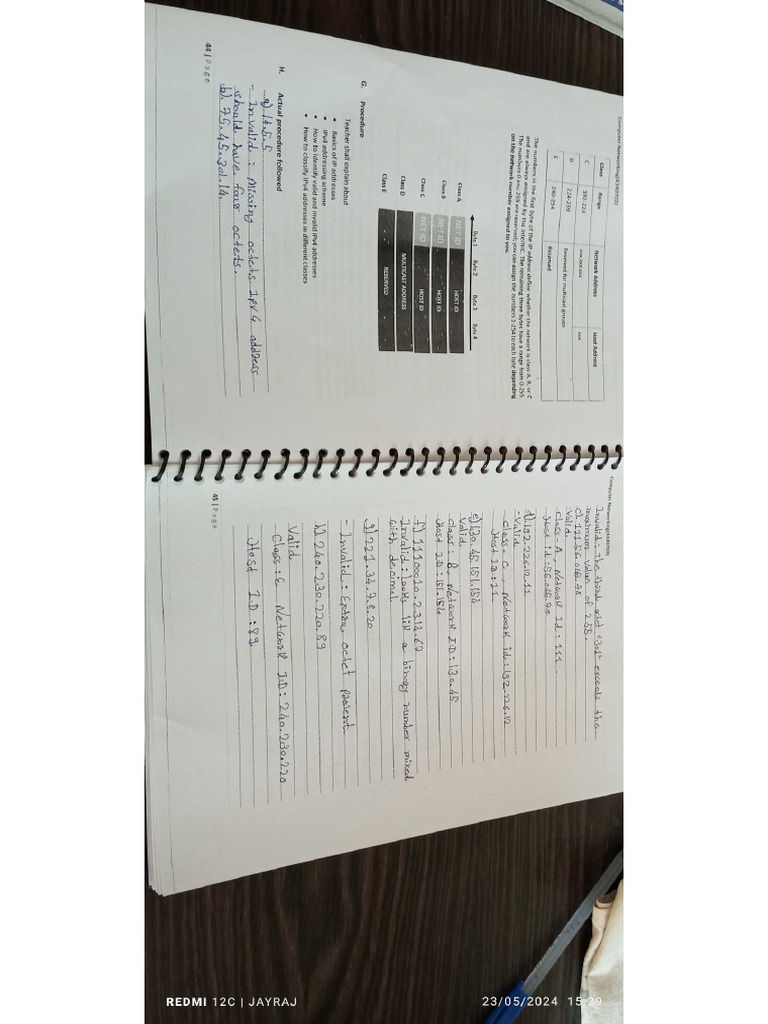 Computer Networking(4340703)
Class Range Network Address Host Address
C 192-223 xxx.xxx.xxx xxx
D 224-239 Reserved for multicast groups
E 240-254 Reserved
The numbers in the first byte of the IP address define whether the network is class A, B, or C
and are always assigned by the Internic. The remaining three bytes have a range from 0-255.
The numbers 0 and 255 are reserved; you can assign the numbers 1-254 to each byte depending
on the network number assigned to you.
Byte 1 Byte 2 Byte 3 Byte 4
Class A NET ID HOST ID
Class B NET ID HOST ID
Class C NET ID HOST ID
Class D MULTICAST ADDRESS
Class E RESERVED
G. Procedure
Teacher shall explain about
• Basics of IP addresses
• IPv4 addressing scheme
• How to identify valid and invalid IPv4 addresses
• How to classify IPv4 addresses in different classes
H. Actual procedure followed
a) 17.5.5
- Invalid : Missing octets. Ipv4 address
should have four octets.
b). 75.45.301.14.
44 | Page
Computer Networking(4340703)
Invalid. The third octet "301" exceeds the
maximum value of 255.
c) 111.56.046.78
Valid.
class: A Network Id : 111
Host id : 56.046.78
d) 192.226.12.11
- Valid.
class: C Network id : 192.226.12
Host ID : 11
e) 130.45.151.154
Valid
class : B Network ID : 130.45
Host ID : 151.154
f) 1110010.2.314.62
Invalid : Looks lik a binary number mixed
with decimal.
g) 221.34.7.8.20
- Invalid : Extra octet present
h) 240.230.220.89
Valid
Class : E Network ID : 240.230.220
Host ID : 89
45 | Page
REDMI 12C | JAYRAJ
23/05/2024 15:29